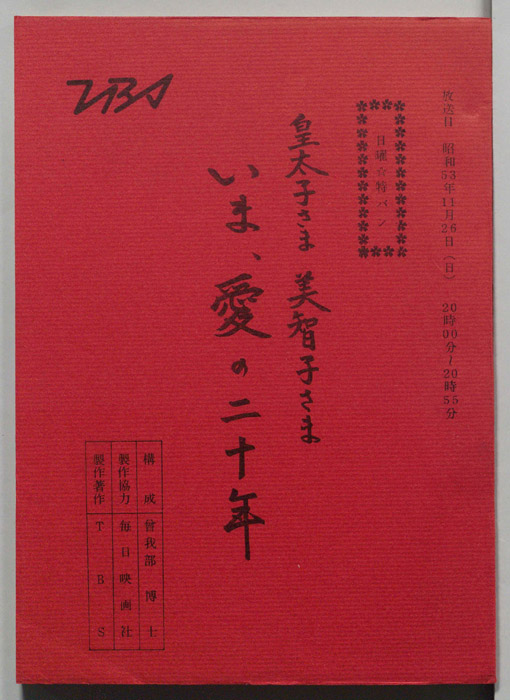 放送日 昭和53年11月26日（日） 20時00分～20時55分
日曜☆特バン
皇太子さま 美智子さま
いま、愛の二十年
TBS
構成 曾我部博士
製作協力 毎日映画社
製作著作 TBS